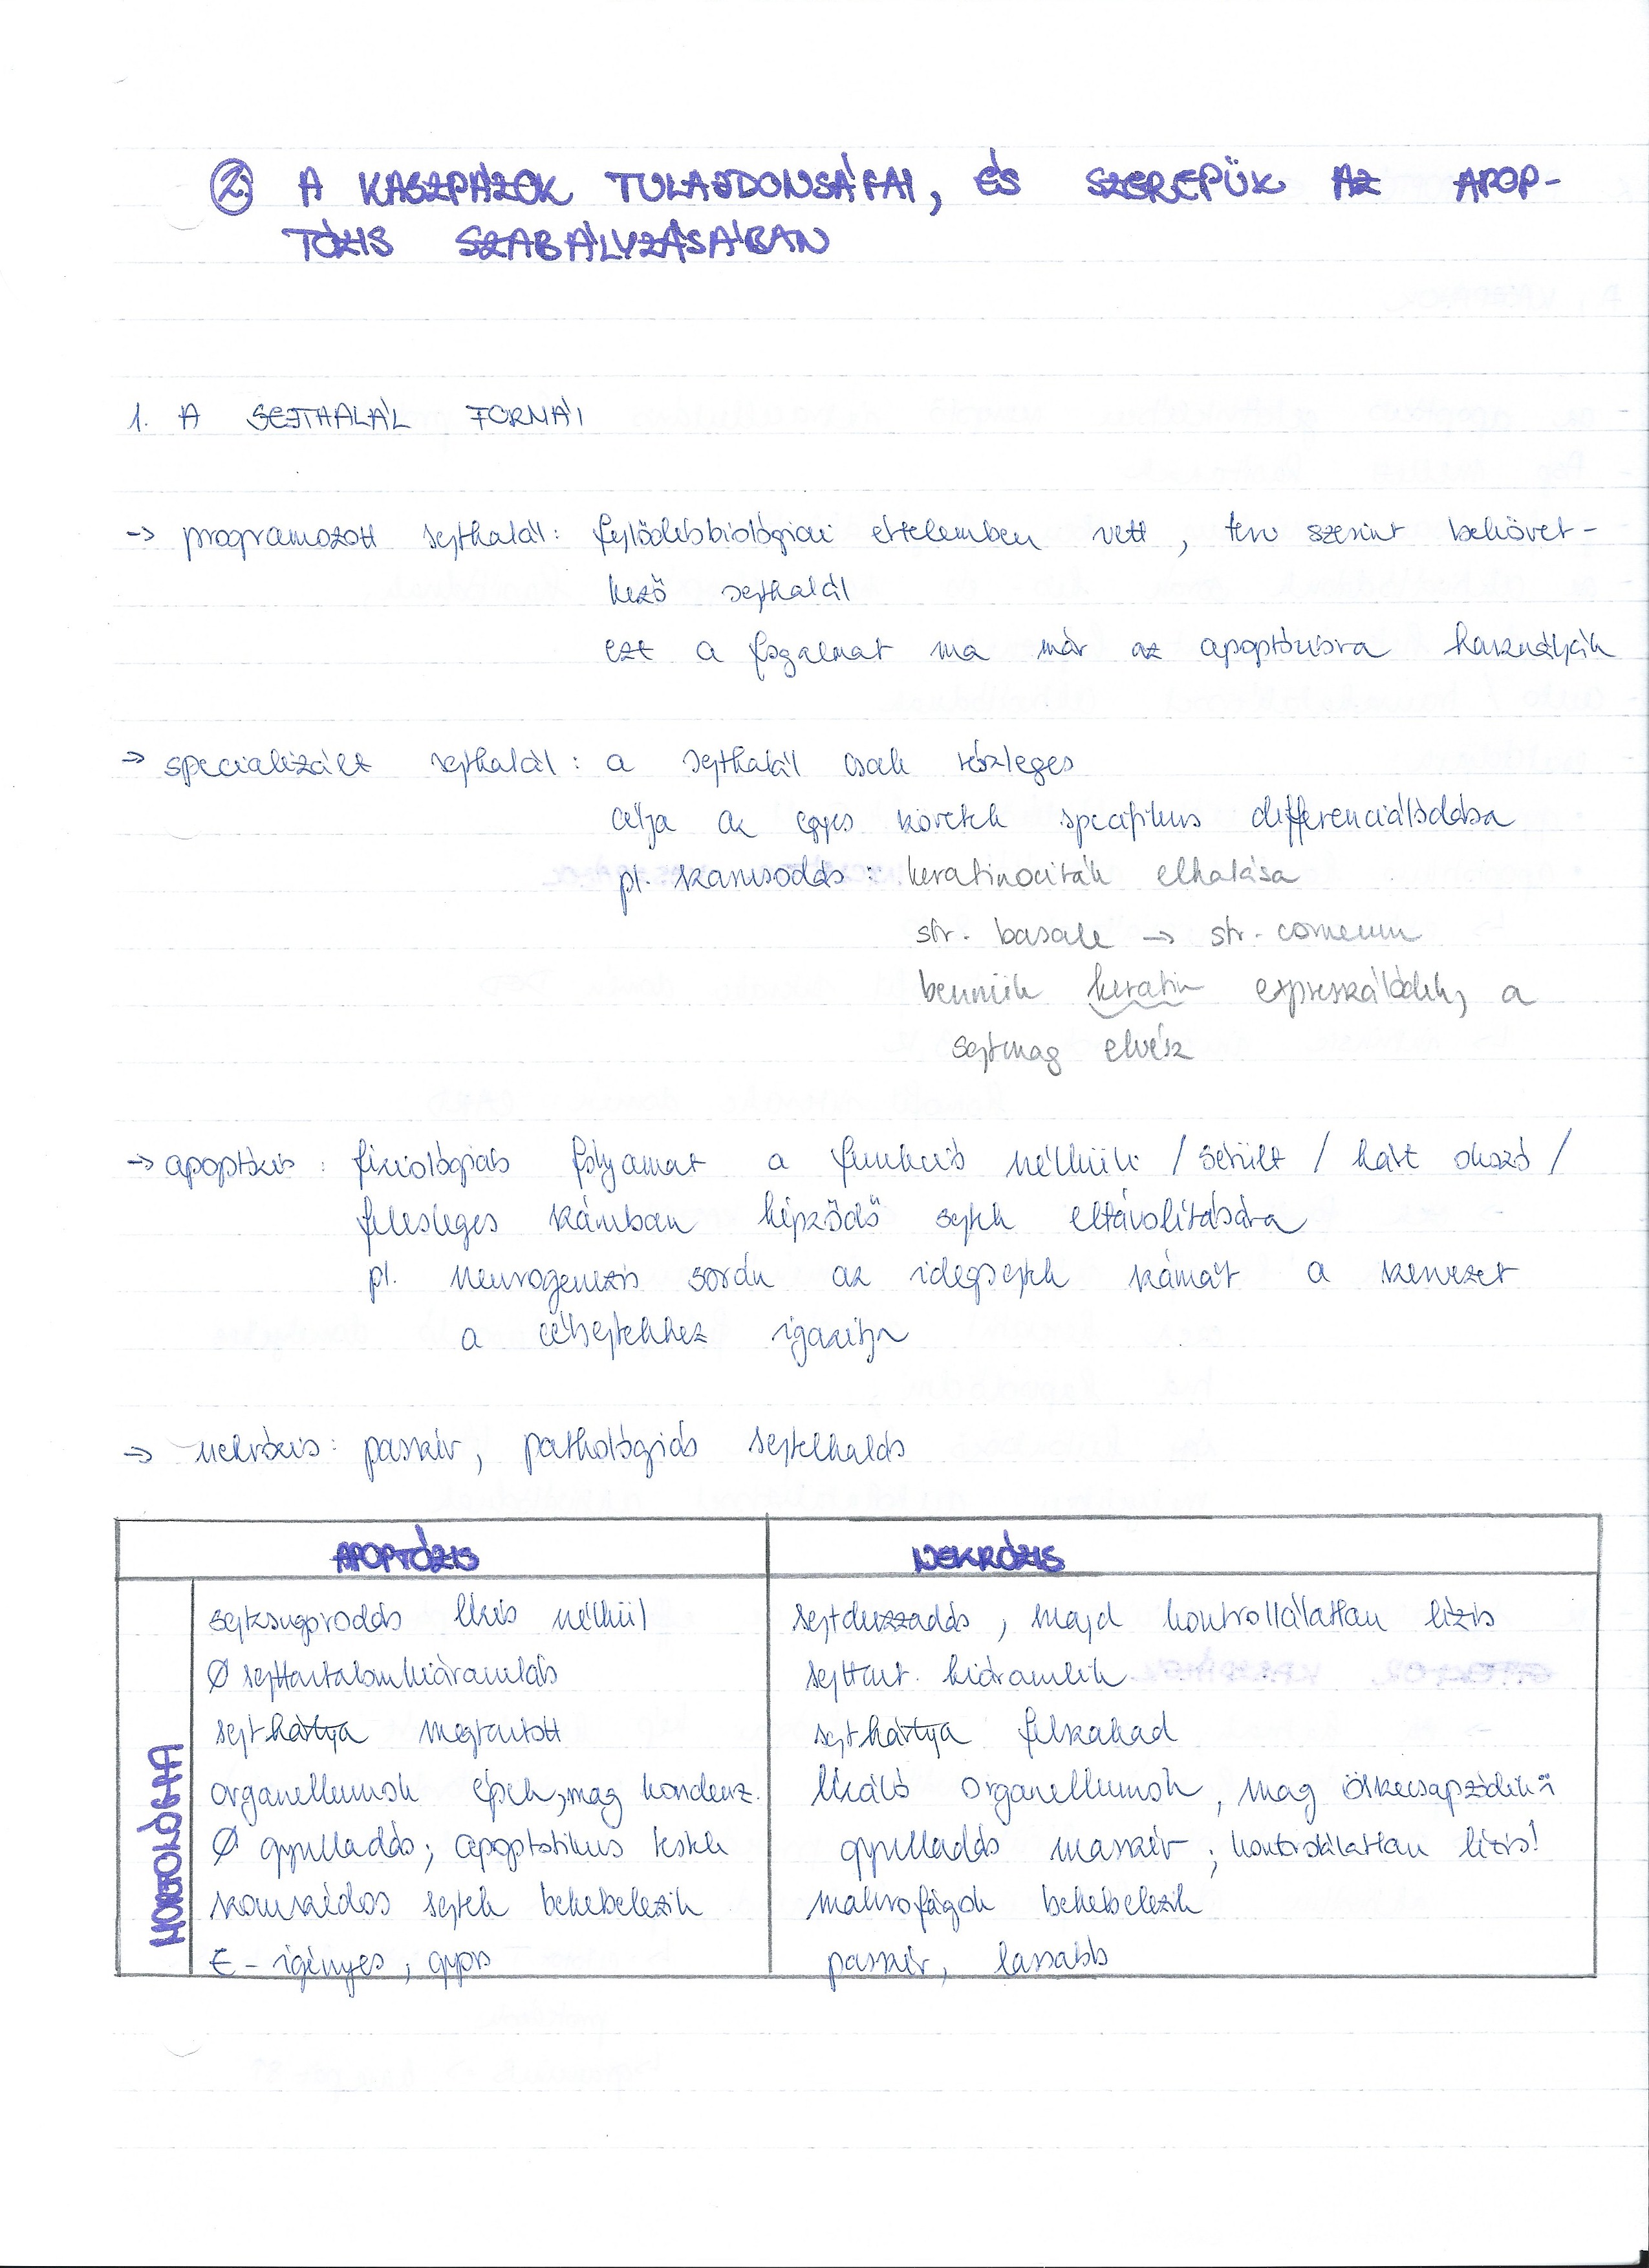 2. A KASZPÁZOK TULAJDONSÁGAI, ÉS SZEREPÜK AZ APOP-
TÓZIS SZABÁLYZÁSÁBAN
1. A SEJTHALÁL FORMÁI
→ programozott sejthalál: fejlődésbiológiai értelemben vett, terv szerint bekövet-
kező sejthalál
ezt a fogalmat ma már az apoptózisra használják
→ specializált sejthalál: a sejthalál csak részleges
célja az egyes szövetek specifikus differenciálódása
pl. szarusodás: keratinociták elhalása
str. basale → str. corneum
bennük keratin expresszálódik, a
sejtmag elvész
→ apoptózis: fiziológiás folyamat a funkció nélküli / sérült / kárt okozó /
felesleges számban képződő sejtek eltávolítására
pl. neurogenezis során az idegsejtek számát a szervezet
a célsejtekhez igazítja
→ nekrózis: passzív, pathológiás sejtelhalás
APOPTÓZIS NEKRÓZIS
MORFOLÓGIA
sejtzsugorodás lízis nélkül sejtduzzadás, majd kontrollálatlan lízis
Ø sejttartalomkiáramlás sejttart. kiáramlik
sejthártya megtartott sejthártya felszakad
organellumok épek, mag kondenz. lizáló organellumok, mag összecsapzódik
Ø gyulladás; apoptotikus testek gyulladás masszív; kontrolálatlan lízis!
szomszédos sejtek bekebelezik makrofágok bekebelezik
E-igényes, gyors passzív, lassabb